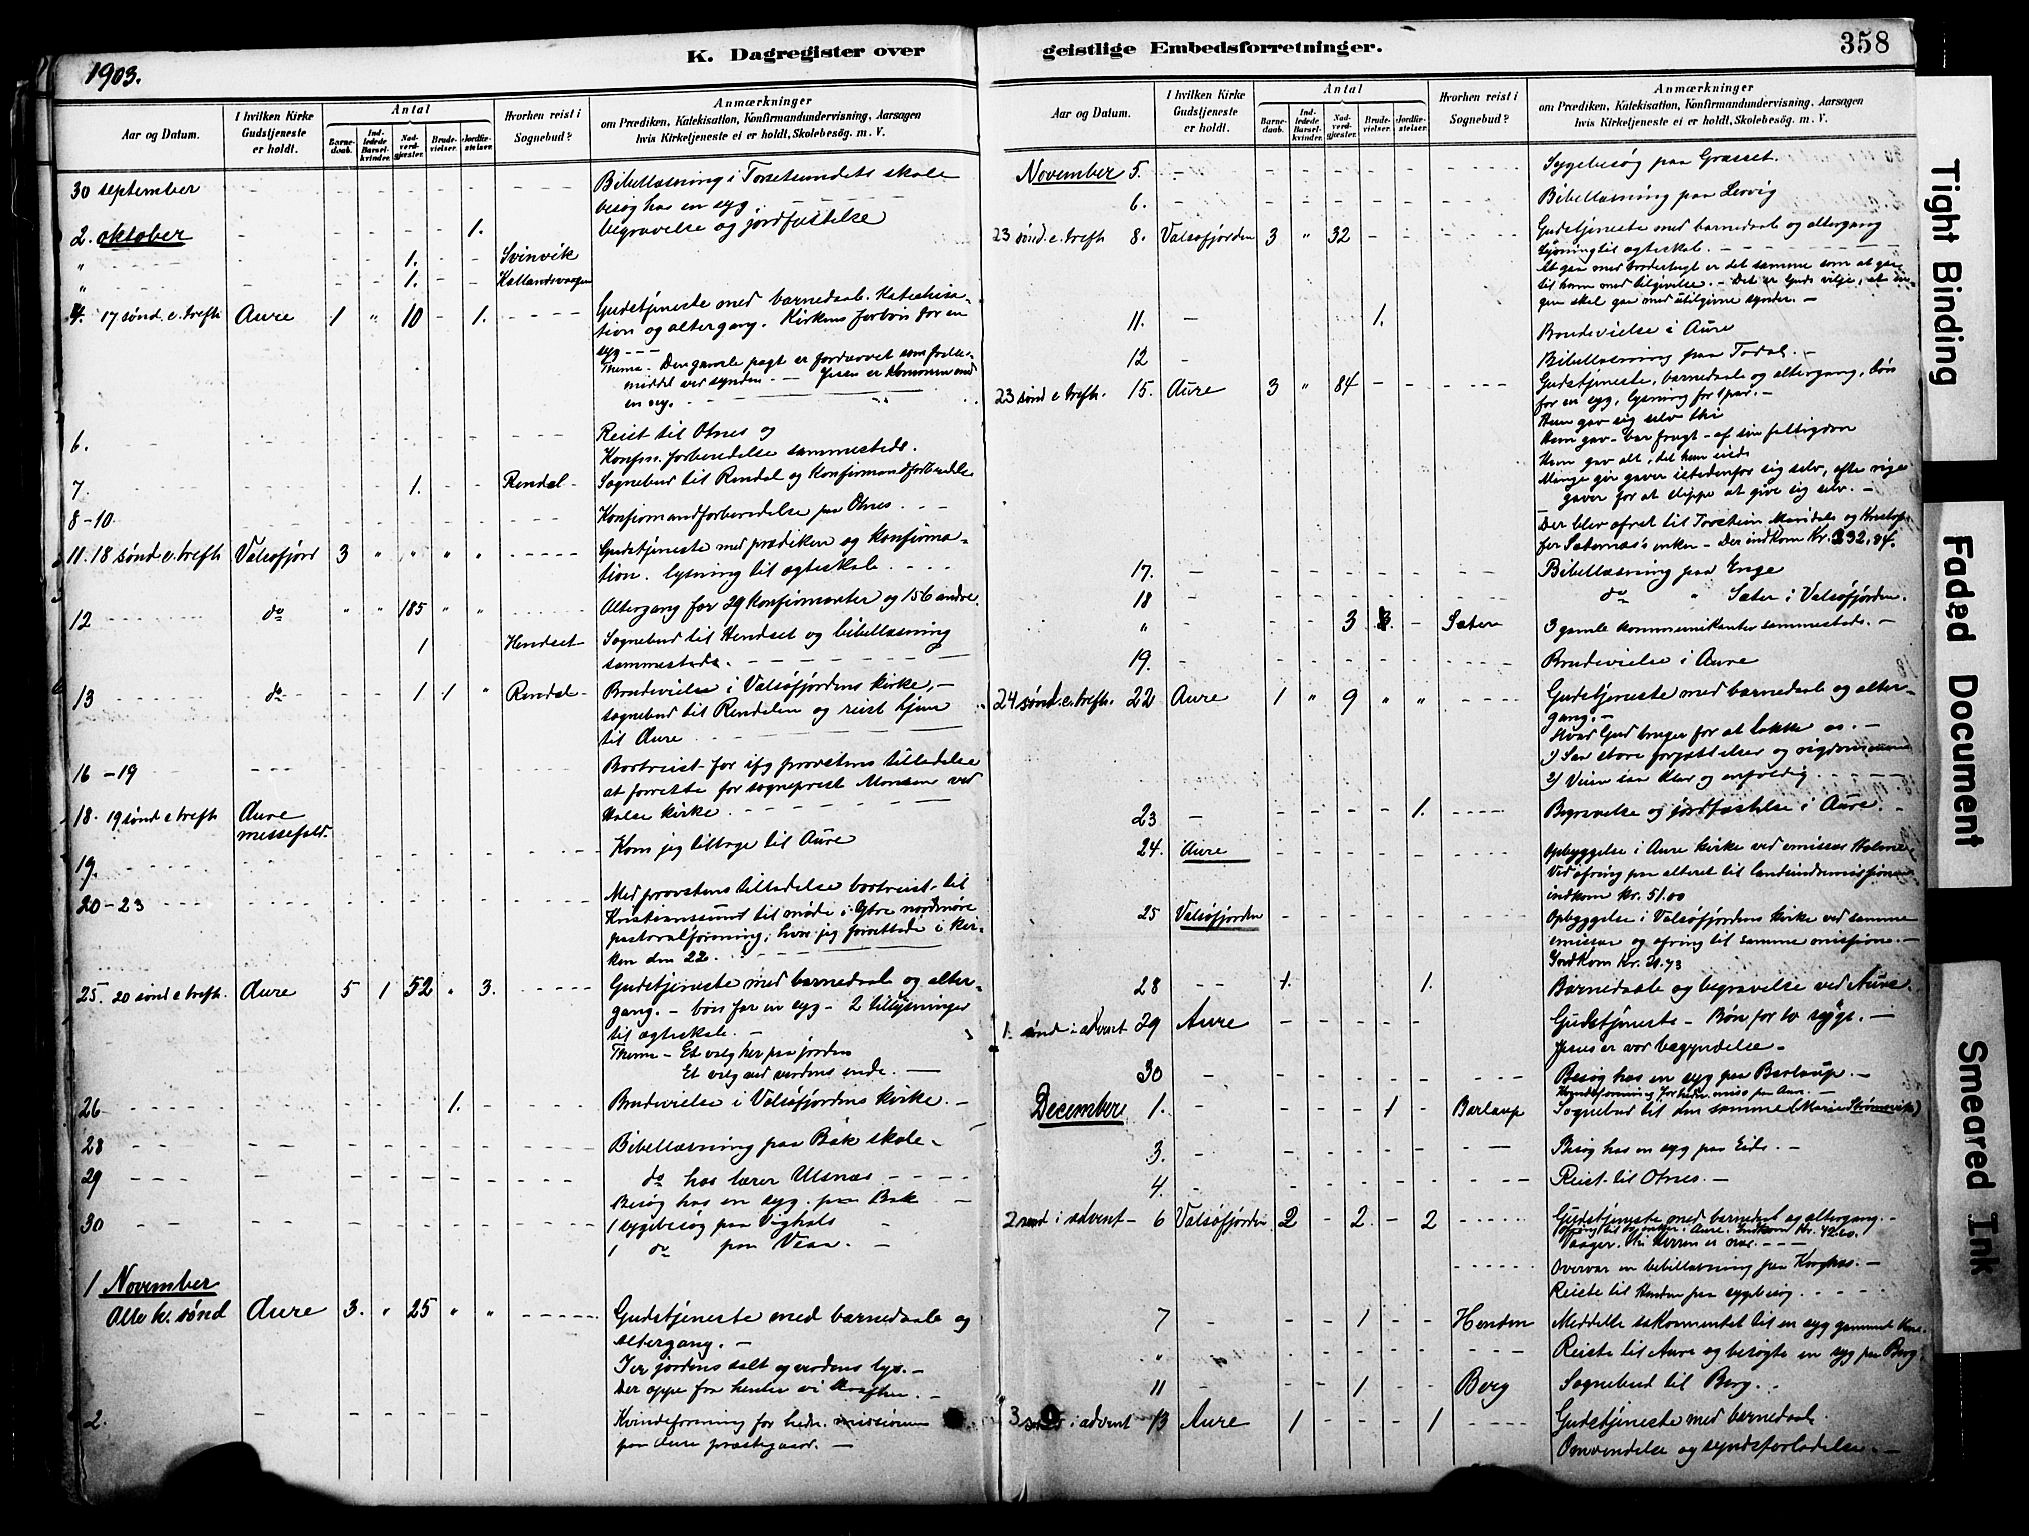 K. Dagregister over geistlige Embedsforretninger.
358
1903.
Aar og Datum.
I hvilken Kirke Gudstjeneste er holdt.
Antal
Barnedaab.
Indledede Barselkvinder.
Nadverdgjæster.
Brudevielser.
Jordfæstelser.
Hvorhen reist i Sognebud?
Anmærkninger
om Prædiken, Katekisation, Konfirmandundervisning, Aarsagen
hvis Kirketjeneste ei er holdt, Skolebesøg. m. V.
30 september - - - - - - Bibellæsning i Torsetsundets skole
besøg hos en syg.
2. oktober - - - - 1. begravelse og jordfæstelse
" - - 1. - - Svinvik
" - - 1. - - Kallandsvaagen
4. 17 sønd. e. trefh Aure 1 " 10 - 1. Gudstjeneste med barnedaab. Katechisa-
tion og altergang. Kirkens forbøn for en
syg - - -
Thema - Den gamle pagt er fordærvet som frelse-
middel ved synden. - Jesus er kommen med
en ny.
6. - - - - - Reist til Otnes og
Konfm. forberedelse sammesteds.
7 - - 1. - - Rendal - Sognebud til Rendal og konfirmandforberedelse
8-10 - - - - - Konfirmandforberedelse paa Otnes.
11. 18 sønd. e. trefh Valsøfjord 3 " " " " Gudstjeneste med prædiken og konfirma-
tion. lysning til ægteskab.
12 do " " 185 " " Altergang for 29 konfirmanter og 156 andre.
1 Hendset Sognebud til Hendset og bibellæsning
sammesteds.
13 do - - 1 1 " Rendal - Brudevielse i Valsøfjordens kirke, -
sognebud til Rendalen og reist hjem
til Aure
16 - 19 - - - Bortreist for ifg provstens tilladelse
at forrette for sogneprest Monsen ved
18. 19 sønd e trefh Aure messefald. Halse kirke.
19. - - - - - Kom jeg tilbage til Aure
20-23 - - - - - Med provstens tilladelse bortreist til
Kristianssund til møde i Ytre nordmøre
pastoralforening, hvor jeg forrettede i kir-
ken den 22.
25. 20 sønd e trefh. Aure 5 1 52 " 3. Gudstjeneste med barnedaab og alter-
gang. - bøn for en syg - 2 tillysninger
til ægteskab. -
Thema - Et valg her paa jorden
Et valg ved verdens ende. -
26 - - - 1. - Brudevielse i Valsøfjordens kirke. -
28 - - - Bibellæsning paa Bøk skole -
29 - - - do hos lærer Ulsnæs
Besøg hos en syg paa Bøk -
30 - - - 1 sygebesøg paa Vighals
1 do paa Vean. -
1 November
Alle h. sønd Aure 3. " 25 " " Gudstjeneste med barnedaab og
altergang. -
I er jordens salt og verdens lys. -
Der oppe fra henter vi kraften. -
2. - - - Kvindeforening for hedn. missionen
paa Aure præstegaard. -
Aar og Datum.
I hvilken Kirke Gudstjeneste er holdt.
Antal
Barnedaab.
Indledede Barselkvinder.
Nadverdgjæster.
Brudevielser.
Jordfæstelser.
Hvorhen reist i Sognebud?
Anmærkninger
om Prædiken, Katekisation, Konfirmandundervisning, Aarsagen
hvis Kirketjeneste ei er holdt, Skolebesøg. m. V.
November 5. - - - Sygebesøg paa Grasset.
6. - - - Bibellæsning paa Lervig
23 sønd. e. trefh 8. Valsøfjorden 3 " 32 - - Gudstjeneste med barnedaab og altergang
Lysning til ægteskab.
At gaa med brodertugt er det samme som at gaa
til ham med tilgivelse. - Det er Guds vilje, at in-
gen skal gaa med utilgivne synder. -
11. - 1. Brudevielse i Aure
12 - Bibellæsning paa Todal. -
23 sønd e trefh. 15. Aure 3 " 84 - - Gudstjeneste, barnedaab og altergang, bøn
for en syg, lysning for 1 par. -
Hun gav sig selv thi
Hun gav - bar frugt - af sin fattigdom
Hun gav alt, det hun eiede
Mange gir gaver istedenfor sig selv, ofte rige
gaver for at slippe at give sig selv. -
Der blev ofret til Torstein Mardal og Kristof-
fer Sæternes's enker - Der indkom Kr. 232,84.
17. - - - Bibellæsning paa Enge
18 - - - do " Sæter i Valsøfjorden.
" - - 3 - Sæter 3 gamle kommunikanter sammesteds. -
19. - - - Brudevielse i Aure
24 sønd. e. trefh. 22 Aure 1 " 9 " " Gudstjeneste med barnedaab og alter-
gang. -
Hvad Gud bruger for at lokke os. -
1) Saa store forjættelser og
2) Veien saa klar og enfoldig
23 - - - 1. Begravelse og jordfæstelse i Aure. -
24. Aure - - - Opbyggelse i Aure kirke ved emissær Holm
Ved ofring paa alteret til landsindremissionen
indkom kr. 51.00
25 Valsøfjorden - - - Opbyggelse i Valsøfjordens kirke ved samme
emissær og ofring til samme mission. -
Indkom Kr. 21.73
28 - - 1. - - - 1. Barnedaab og begravelse ved Aure.
1. sønd i advent 29 Aure - - - Gudstjeneste - Bøn for to syge. -
Jesus er vor begyndelse. -
30 - - - Besøg hos en syg paa Barlaup. -
Kvindeforening for hedn. miss paa Aure. -
December 1. - - 1 - Barlaup Sognebud til den samme (Marie Strømsvik)
3. - - - Besøg hos en syg paa Eide. -
4. - - - Reist til Otnes. -
2 sønd i advent - 6 Valsøfjorden 2 - 2 - 2 Gudstjeneste med barnedaab og altergang. -
Indkom Kr. 42.60.
Vaager, thi Herren er nær. - - -
Overvar en bibellæsning paa
Reiste til Henden paa sygebesøg
7 - - - 1 - - Henden Meddelte sakramentet til en syg gammel
" - - - Reiste til Aure og besøgte en syg paa Berg
11 - - - 1 - Berg Sognebud til Berg.
3 sønd i advent 13 Aure 1 - - - 1 Gudstjeneste med barnedaab.
Omvendelse og syndsforladelse. -
Tight Binding
Faded Document
Smeared Ink